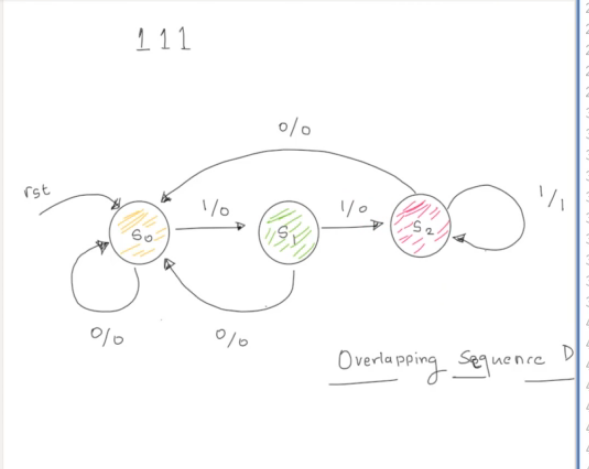 111
0/0
rst
1/0
1/0
1/1
S0
S1
S2
0/0
0/0
Overlapping Sequence D